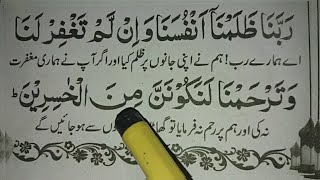 رَبَّنَا ظَلَمْنَا أَنْفُسَنَا وَإِنْ لَمْ تَغْفِرْ لَنَا
اے ہمارے رب! ہم نے اپنی جانوں پر ظلم کیا اور اگر آپ نے ہماری مغفرت
وَتَرْحَمْنَا لَنَكُونَنَّ مِنَ الْخٰسِرِيْنَ
نہ کی اور ہم پر رحم نہ فرمایا تو سے ہو جائیں گے